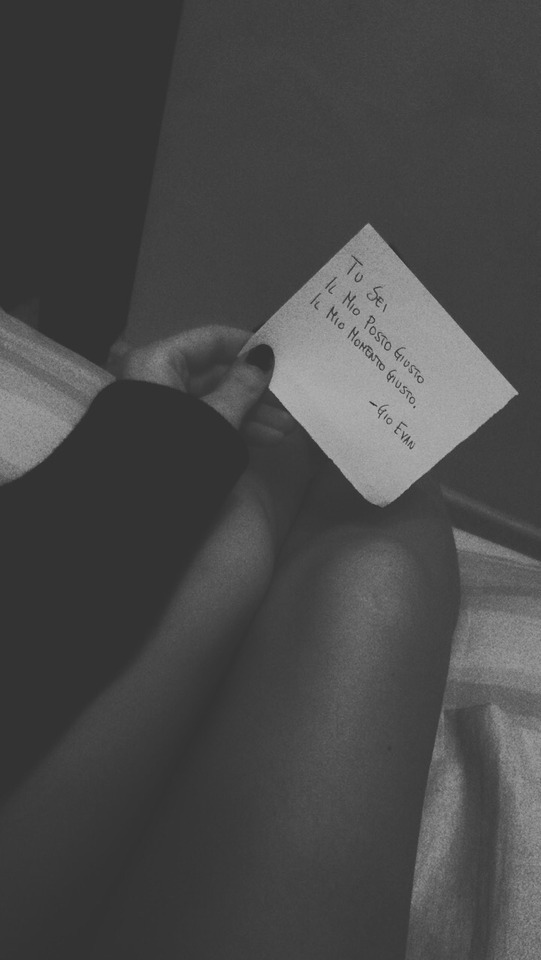 TU SEI
IL MIO POSTO GIUSTO
IL MIO MOMENTO GIUSTO.
-GIO EVAN